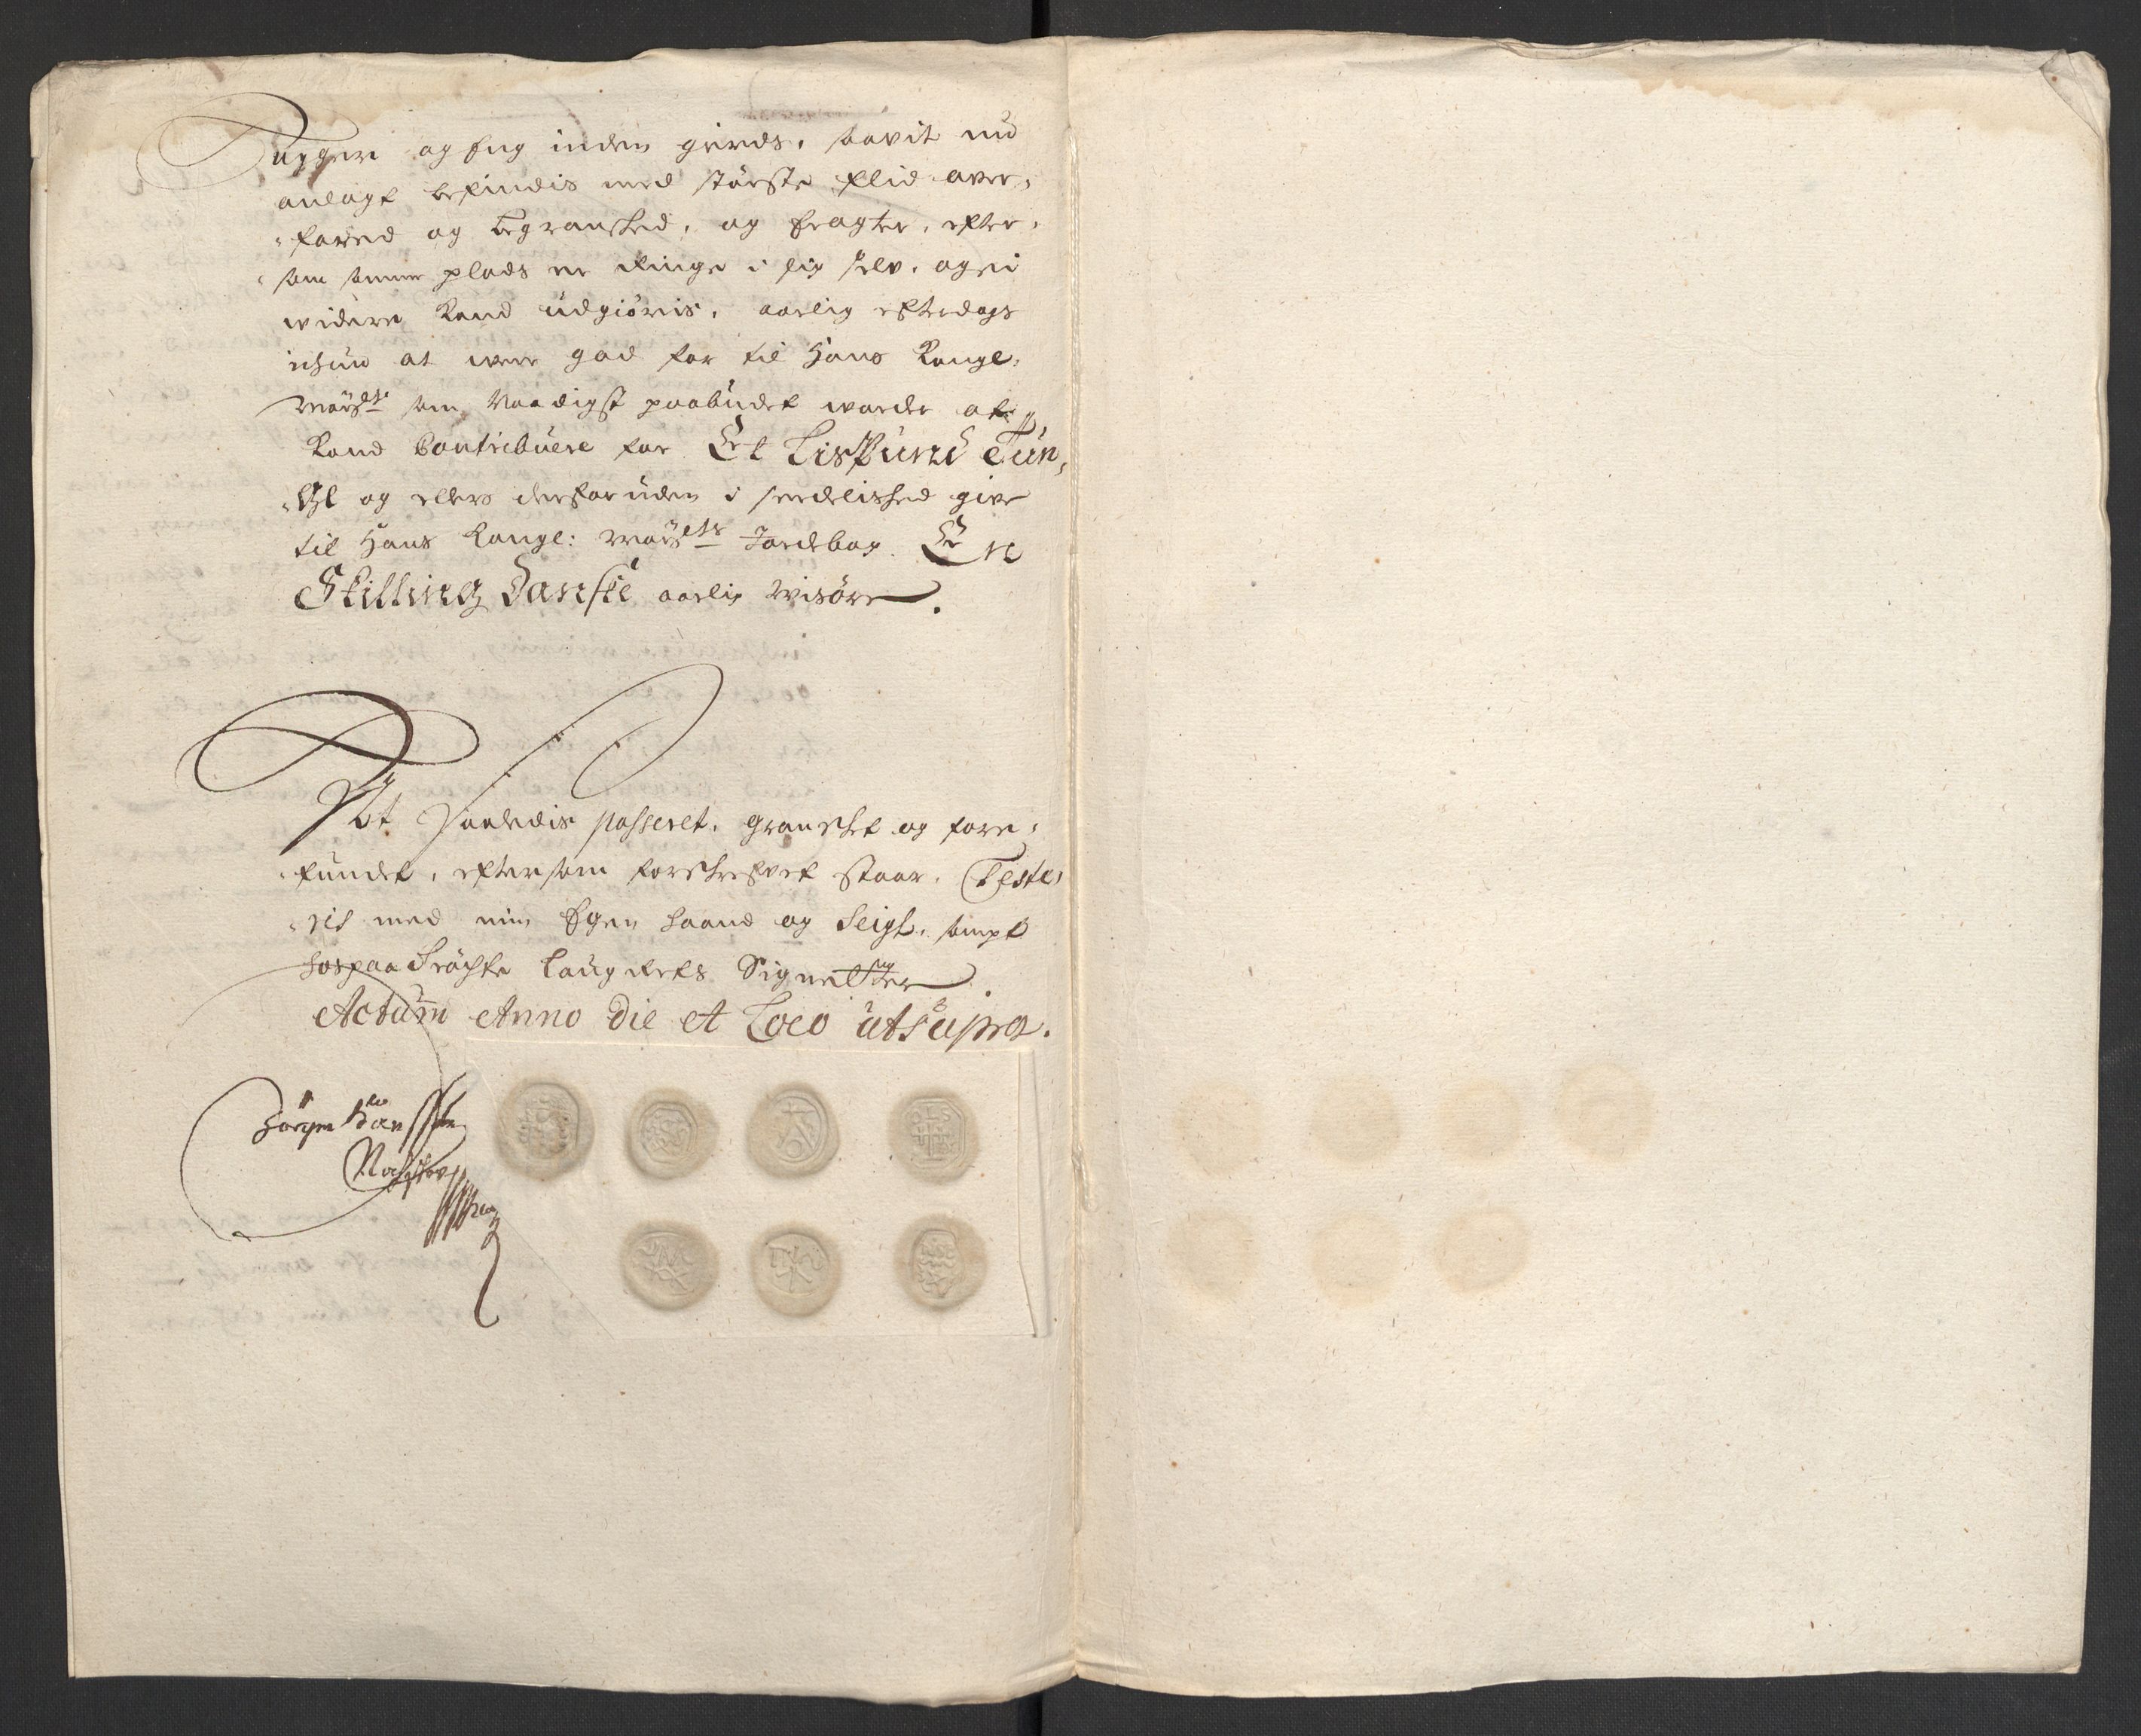 Rugger og Eng inden gierds, saavit nu
anlagt befindis med störste flid over,
„fared og begransked, og eragter, efter,
„som samme plads er ringe i sig selv, og ei
widere kand udgiöris, aarlig efterdags
ichun at were god for til Hans Kongl:
Mayst: som Naadigst paabudet worder at
kand Contribuere for Et Lispund Tun,
„gl og ellers derforuden i serdelished give
til Hans Kongl: Mayets Jordebog. En
Skilling Danske aarlig Wisöre.
At Saaledis passeret, gransket og forre,
„fundet, eftersom forskrefvet staar. Teste,
„ris med min Egen haand og Seigl, sampt
hospaa tröchte Laugrets Signetter.
Actum Anno Die et Loco utsupra.
Jörgen Hansen